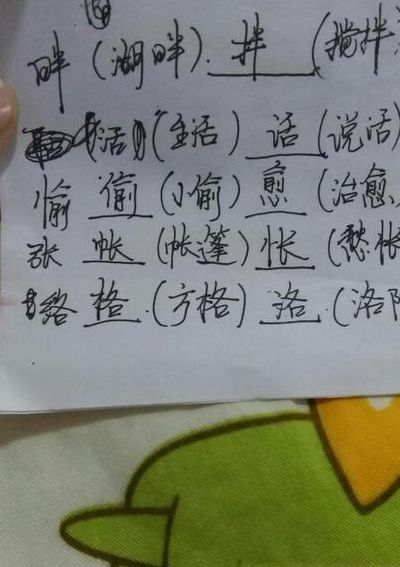 畔 (湖畔). 拌 (搅拌
活 (生活) 话 (说话)
愉 偷 (小偷) 愈 (治愈
张 帐 (帐篷) 怅 (愁怅
络 格 (方格) 洛 (洛阳